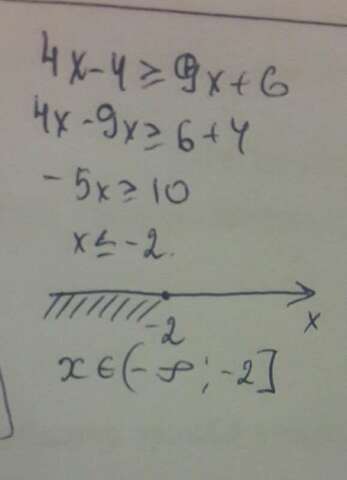 4x-4≥9x+6
4x-9x≥6+4
-5x≥10
x≤-2.
-2
x
x∈(-∞;-2]